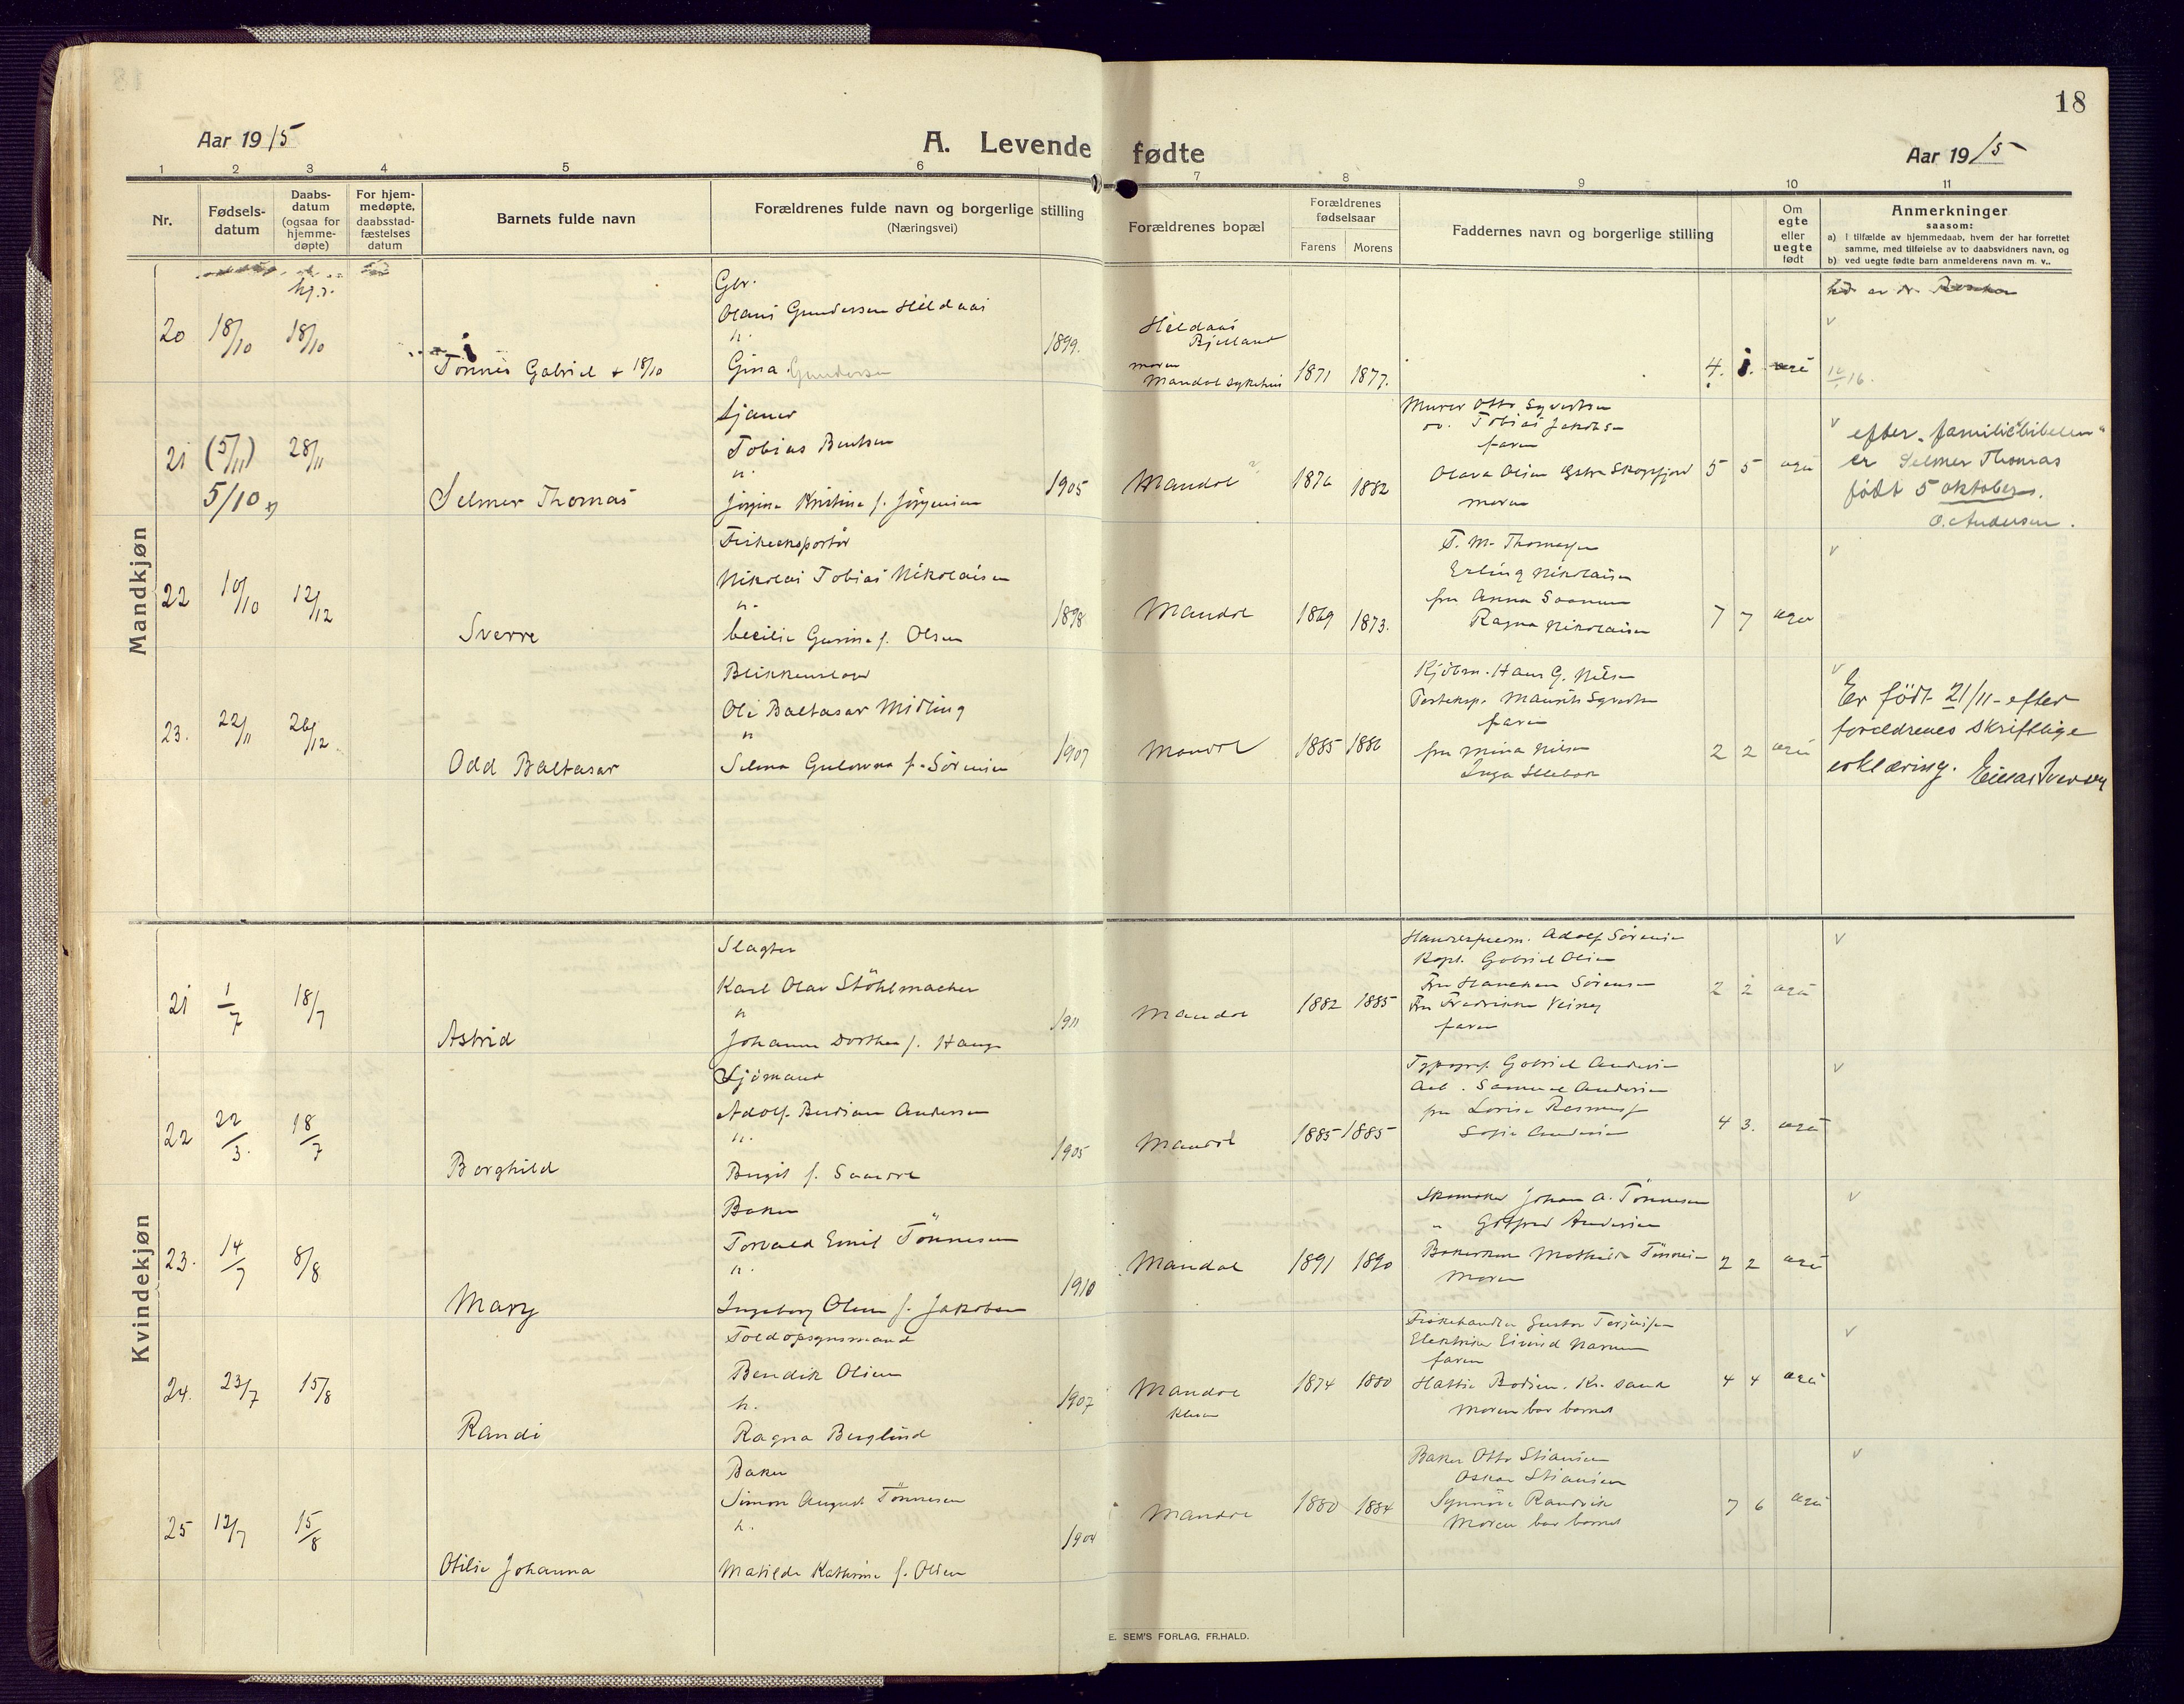 18
Aar 1915
A. Levende fødte
Aar 1915
1 2 3 4 5 6 7 8 9 10 11
Nr.
Fødsels-
datum
Daabs-
datum
(ogsaa for
hjemme-
døpte)
For hjem-
medøpte,
daabsstad-
fæstelses
datum
Barnets fulde navn
Forældrenes fulde navn og borgerlige stilling
(Næringsvei)
Forældrenes bopæl
Forældrenes
fødselsaar
Farens Morens
Faddernes navn og borgerlige stilling
Om
egte
eller
uegte
født
Anmerkninger
saasom:
a) I tilfælde av hjemmedaab, hvem der har forrettet
samme, med tilføielse av to daabsvidners navn, og
b) ved uegte fødte barn anmelderens navn m. v..
Mandkjøn
20 18/10 hj.d. 18/10
Tønnes Gabriel + 18/10
Gbr.
Olaus Gundersen Heldaas
h.
Gina Gundersen
1899.
Heldaas
Bjelland
moren
Mandal sykehus
1871 1877.
4.
21 (5/11) 28/11
5/10
Selmer Thomas
Sjauer
Tobias Bentsen
h.
Jørgine Kristine f. Jørgensen
1905
Mandal
1876 1882
Murer Otto Syvertsen
Tobias Jakobsen
faren
Olava Olsen
moren
5 5 egte
efter "familiebibelen"
er Selmer Thomas
født 5 oktober.
O. Andersen.
22 10/10 12/12
Sverre
Fiskeeksportør
Nikolai Tobias Nikolaisen
h.
Cecilie Gurine f. Olsen
1898
Mandal
1869 1873.
T. M. Thomassen
Erling Nikolaisen
fru Anna Saanum
Ragna Nikolaisen
7 7 egte
23. 22/11 26/12
Odd Baltasar
Blikkenslager
Ole Baltasar Midling
h
Selma Gulowna f. Sørensen
1907
Mandal
1885 1886
Kjøbm. Hans G. Nilsen
Posteksp. Maurits Syvertsen
faren
fru Mina Nilsen
Inga Ellebak
2 2 egte
Er født 21/11 - efter
forældrenes skriftlige
erklæring. Einar Iversen
Kvindekjøn
21 1/7 18/7
Astrid
Slagter
Karl Olav Stöhlmacher
h
Johanne Dorthea f. Hauge
1911
Mandal
1882 1885
Handelsfuldm. Adolf Sørensen
Kapt. Gabriel Olsen
Fru Hanchen Sørensen
Fru Fredrikke
faren
2 2 egte
22 22/3. 18/7
Borghild
Sjømand
Adolf Andersen
h.
Birgit f. Saandre
1905
Mandal
1885 1885
Typogrf. Gabriel Andersen
Arb. Samuel Andersen
fru Lovise Rasmussen
Sofie Andersen
4 3. egte
23. 14/7 8/8
Mary
Baker
Torvald Emil Tønnesen
h.
Ingeborg Olene f. Jakobsen
1910
Mandal
1891 1890
Skomaker Johan A. Tønnesen
" Gotfred Andersen
Bakerkone Mathilde Tønnesen
Moren
2 2 egte
24. 23/7 15/8
Randi
Toldopsynsmand
Bendik Olsen
h.
Ragna Berglind
1907
Mandal
1874 1880
Fiskehandler Gustav Terjesen
Elektriker Eivind
faren
Hattie Bodsen. Kr.sand
Moren bar barnet
4 4 egte
25 12/7 15/8
Otilie Johanna
Baker
Simon August Tønnesen
h.
Matilde Kathrine f. Olsen
1904
Mandal
1880 1884
Baker Otto Stiansen
Oskar Stiansen
Synnøve Randvik
Moren bar barnet
7 6 egte
E. SEM'S FORLAG, FR.HALD.